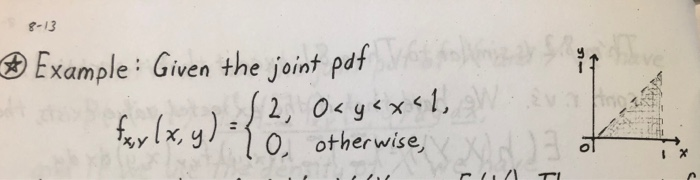 8-13
⍟ Example: Given the joint pdf
f_{X,Y}(x, y) = { 2, 0 < y < x < 1,
0, otherwise,
y
1
0 1 x